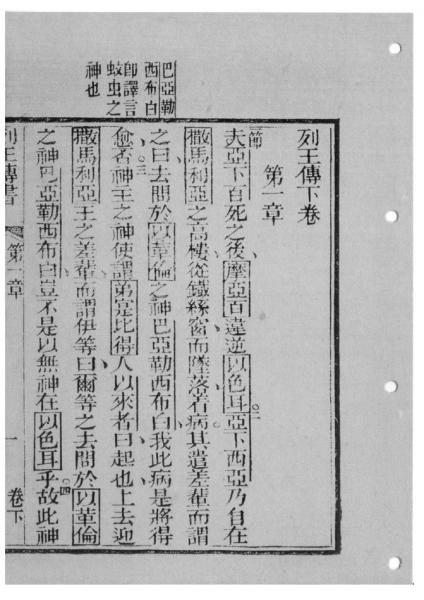 列王傳下卷
第一章
節夫亞下百死之後、摩亞百違逆以色耳。二亞下西亞乃自在
撒馬利亞之高樓、從鐵絲窗而墜落着病。其遣差輩而謂
之曰、去問於以革倫之神巴亞勒西布白、我此病是將得
愈否。三神王之神使謂弟寔比得人以來者曰、起也、上去迎
撒馬利亞王之差輩而謂伊等曰、爾等之去問於以革倫
之神巴亞勒西布白、豈不是以無神在以色耳乎。四故此神
巴亞勒
西布白
卽譯言
蚊虫之
神也
列王傳書 第一章 一 卷下